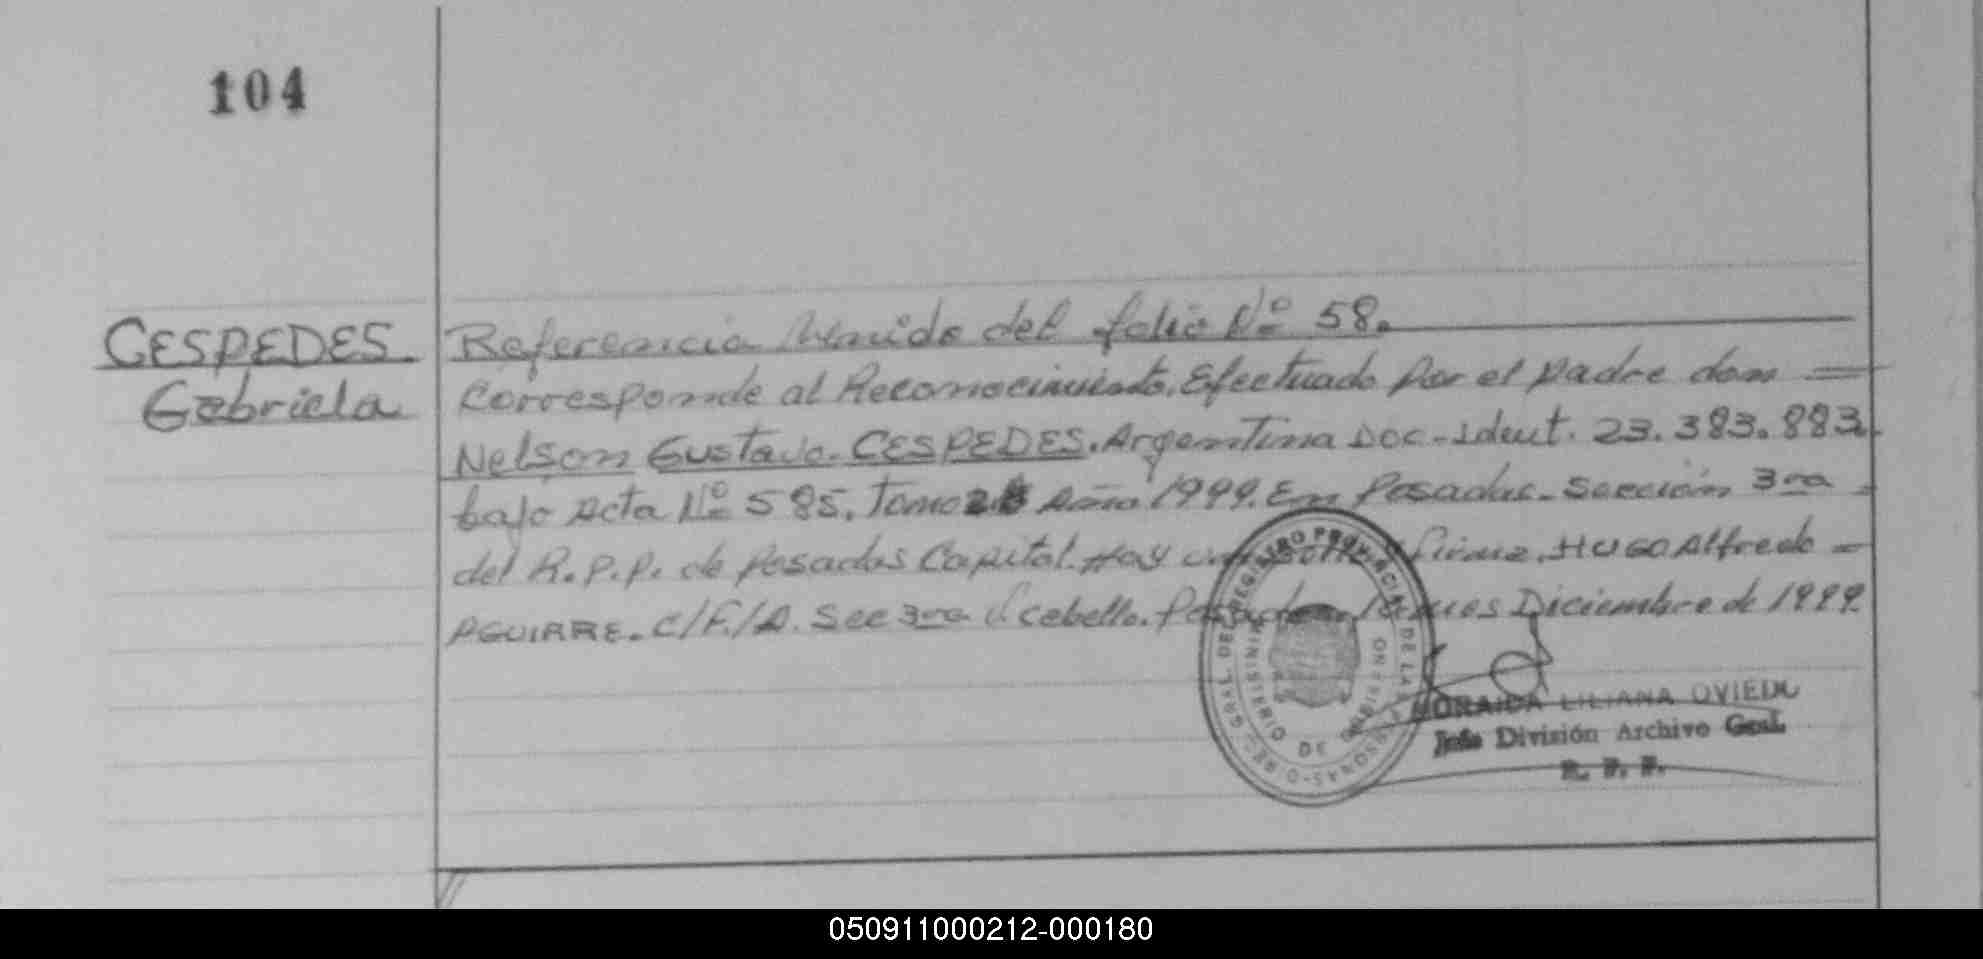 104
CESPEDES
Gabriela
Referencia del folio Nº 58.
Corresponde al Reconocimiento. Efectuado Por el padre don =
Nelson Gustavo CESPEDES. Argentina Doc-Ident. 23.383.883.
bajo Acta Nº 585. Tomo Año 1999. En Posadas - Sección 3ra -
del R.P.P. de Posadas Capital. Hay un sello firma. HUGO Alfredo -
AGUIRRE. C/F./A. Sec 3ra Cabello. Posadas Diciembre de 1999.
DE REGISTRO PROVINCIAL DE LAS PERSONAS
MINISTERIO DE GOBIERNO
MISIONES
MORAIDA LILIANA OVIEDO
Jefe División Archivo Gral.
R. P. P.
050911000212-000180